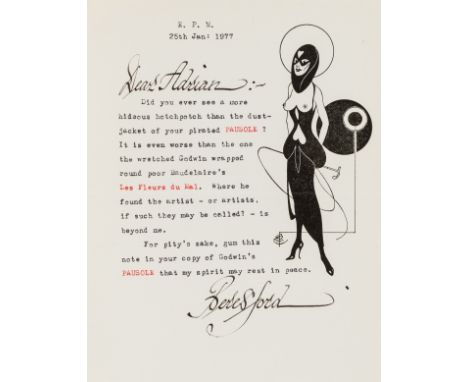 R. P. M.
25th Jan: 1977
Dear Adrian :-
Did you ever see a more
hideous hotchpotch than the dust-
jacket of your pirated PAUSOLE ?
It is even worse than the one
the wretched Godwin wrapped
round poor Baudelaire's
Les Fleurs du Mal. Where he
found the artist - or artists,
if such they may be called? - is
beyond me.
For pity's sake, gum this
note in your copy of Godwin's
PAUSOLE that my spirit may rest in peace.
Beresford